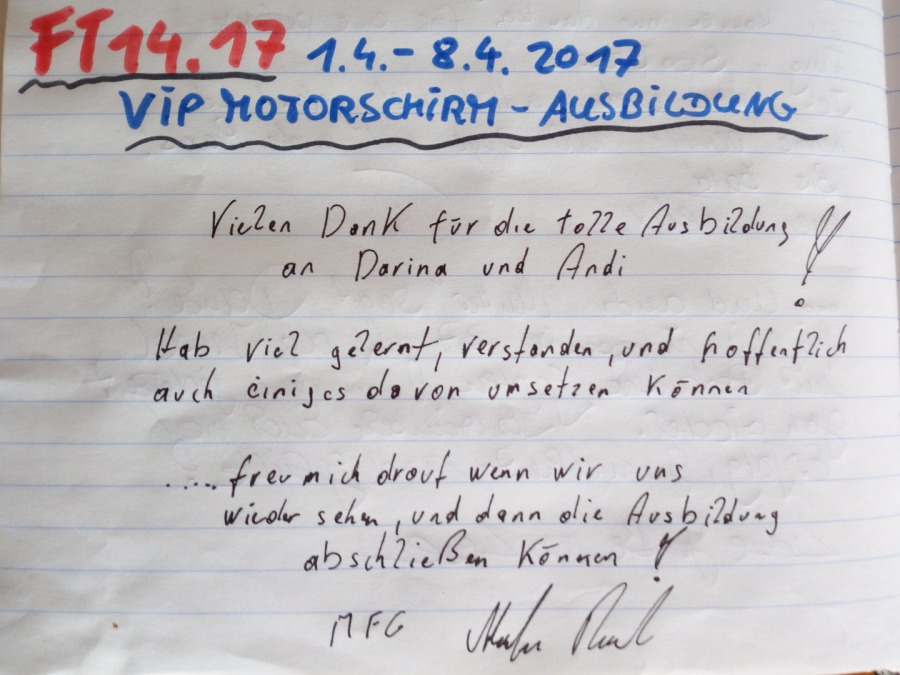 FT14.17 1.4.-8.4. 2017
ViP MOTORSCHIRM - AUSBiLDUNG
Vielen Dank für die tolle Ausbildung !
an Darina und Andi
Hab viel gelernt, verstanden, und hoffentlich
auch einiges davon umsetzen können
..... freu mich drauf wenn wir uns
wieder sehen, und dann die Ausbildung
abschließen können !
MFG